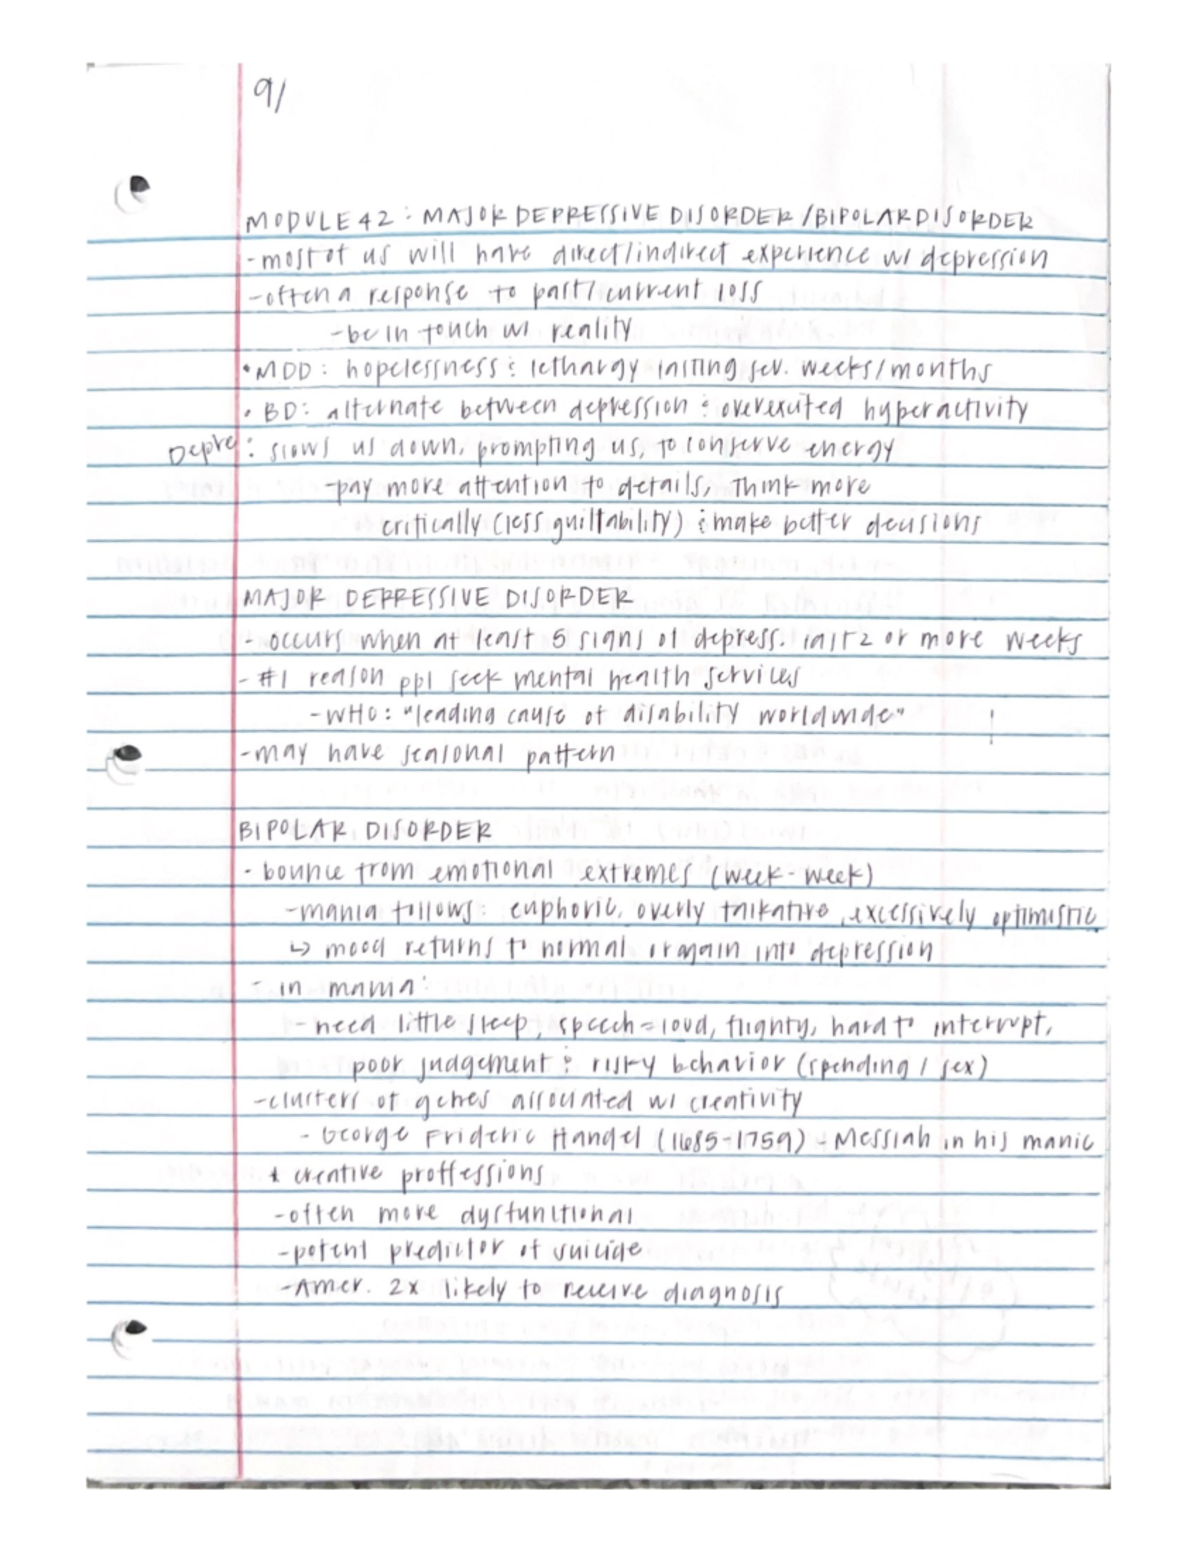 9/
MODULE 42: MAJOR DEPRESSIVE DISORDER/BIPOLAR DISORDER
-most of us will have direct/indirect experience w/ depression
-often a response to past/current loss
-be in touch w/ reality
•MDD: hopelessness & lethargy lasting sev. weeks/months
•BD: alternate between depression & overexcited hyperactivity
Depre: slows us down, prompting us, to conserve energy
-pay more attention to details, Think more
critically (less guiltability) & make better decisions
MAJOR DEPRESSIVE DISORDER
-occurs when at least 5 signs of depress. last 2 or more weeks
-#1 reason ppl seek mental health services
-WHO: "leading cause of disability worldwide" !
-may have seasonal pattern
BIPOLAR DISORDER
-bounce from emotional extremes (week-week)
-mania follows: euphoric, overly talkative, excessively optimistic.
↳ mood returns to normal or again into depression
-in mania:
-need little sleep, speech=loud, flighty, hard to interrupt,
poor judgement & risky behavior (spending/sex)
-clusters of genes associated w/ creativity
-George Frideric Handel (1685-1759)-Messiah in his manic
+ creative proffessions
-often more dysfunctional
-potent predictor of suicide
-Amer. 2x likely to receive diagnosis